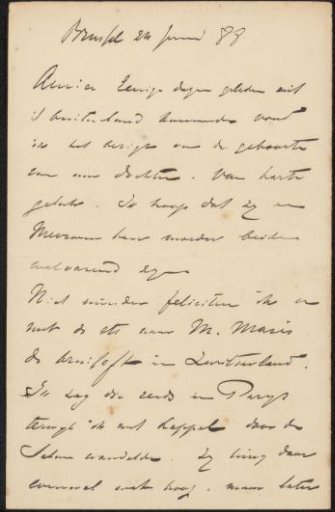 Brussel 24 Juni 88
Amice Eenige dagen geleden uit
't buitenland komende vond
ik het berigt van de geboorte
van uw dochter. Van harte
geluk. Ik hoop dat zij en
Mevrouw haar moeder beiden
welvarend zijn
Niet minder feliciteer ik u
met de ets naar M. Maris
de bruiloft in Zwitserland.
Ik zag die reeds in Parijs
terwijl ik met Keppel door de
Salon wandelde. Zij hing daar
evenwel wat hoog. maar later